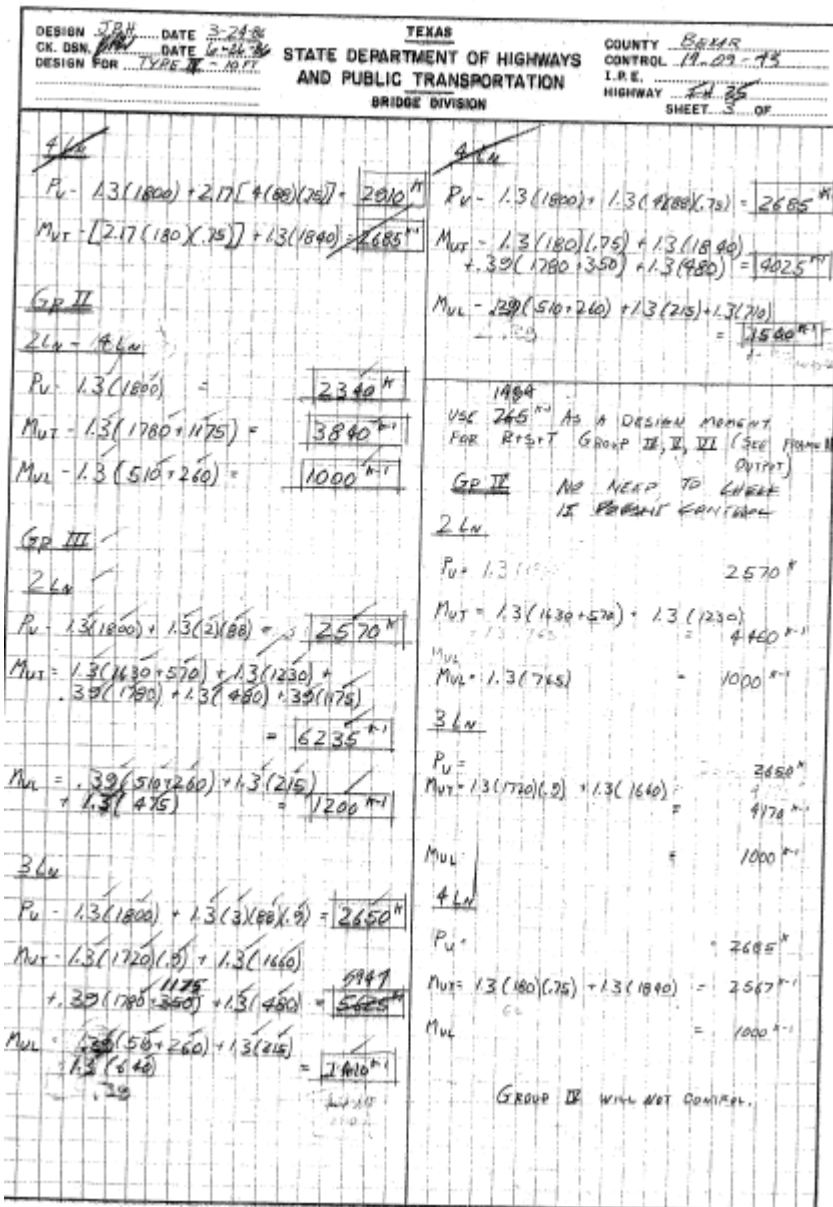 DESIGN JRH DATE 3-24-86
CK. DSN. DATE 6-26-86
DESIGN FOR TYPE II - 10 FT
TEXAS
STATE DEPARTMENT OF HIGHWAYS
AND PUBLIC TRANSPORTATION
BRIDGE DIVISION
COUNTY BEXAR
CONTROL 17-09-93
I.P.E.
HIGHWAY IH 35
SHEET 3 OF
4 LN
PU - 1.3(1800) + 2.17[4(88)(.75)] = 2910 K
MUT - [2.17(180)(.75)] + 1.3(1840) = 2685 K-1
GP II
2 LN - 4 LN
PU - 1.3(1800) = 2340 K
MUT - 1.3(1780+1175) = 3840 K-1
MUL - 1.3(510+260) = 1000 K-1
GP III
2 LN
PU - 1.3(1800) + 1.3(2)(88) = 2570 K
MUT = 1.3(1630+570) + 1.3(1230) +
.39(1780) + 1.3(480) + .39(1175)
= 6235 K-1
MUL = .39(510+260) + 1.3(215)
+ 1.3(475) = 1200 K-1
3 LN
PU - 1.3(1800) + 1.3(3)(88)(.9) = 2650 K
MUT - 1.3(1720)(.9) + 1.3(1660)
1175 5947
+ .39(1780+350) + 1.3(480) = 5625
MUL = .39(510+260) + 1.3(215)
1.3(640) = K-1
.39
4 LN
PU - 1.3(1800) + 1.3(4)(88)(.75) = 2685 K
MUT - 1.3(180)(.75) + 1.3(1840)
+ .39(1780+350) + 1.3(480) = 4025 K-1
MUL - .39(510+260) + 1.3(215) + 1.3(710)
.39 = 1500 K-1
USE 765 K-1 AS A DESIGN MOMENT
FOR R+S+T GROUP IV, V, VI (SEE FRAME 11
OUTPUT)
GP IV NO NEED TO CHECK
IF DOESN'T CONTROL
2 LN
PU = 1.3 2570 K
MUT = 1.3(1630+570) + 1.3(1230)
= 4460 K-1
MUL
MUL = 1.3(765) = 1000 K-1
3 LN
PU = 2650 K
MUT = 1.3(1720)(.9) + 1.3(1660)
= 4170 K-1
MUL = 1000 K-1
4 LN
PU = 2685 K
MUT = 1.3(180)(.75) + 1.3(1840) = 2567 K-1
MUL = 1000 K-1
GROUP IV WILL NOT CONTROL.